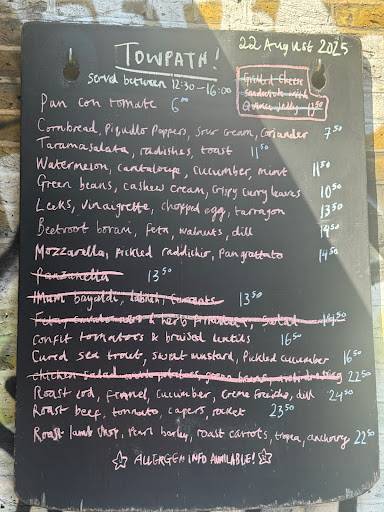 TOWPATH!
22 August 2025
served between 12:30-16:00
Grilled Cheese
Sandwich with
Quince Jelly 12.50
Pan con tomate 6.00
Cornbread, Piquillo Peppers, sour cream, Coriander 7.50
Taramasalata, radishes, toast 11.50
Watermelon, Cantaloupe, cucumber, mint 11.50
Green beans, cashew cream, crispy curry leaves 10.50
Leeks, vinaigrette, chopped egg, tarragon 13.50
Beetroot borani, Feta, walnuts, dill 14.50
Mozzarella, Pickled raddichio, Pangrattato 14.50
Panzanella 13.50
Imam bayaldi, labneh, currants 13.50
Feta, & herb, Salad 14.50
Confit tomatoes & braised lentils 16.50
Cured sea trout, sweet mustard, Pickled cucumber 16.50
chicken salad 22.50
Roast cod, Fennel, cucumber, creme fraiche, dill 24.50
Roast beef, tonnato, capers, rocket 23.50
Roast lamb chop, pearl barley, roast carrots, tropea, anchovy 22.50
ALLERGEN INFO AVAILABLE!